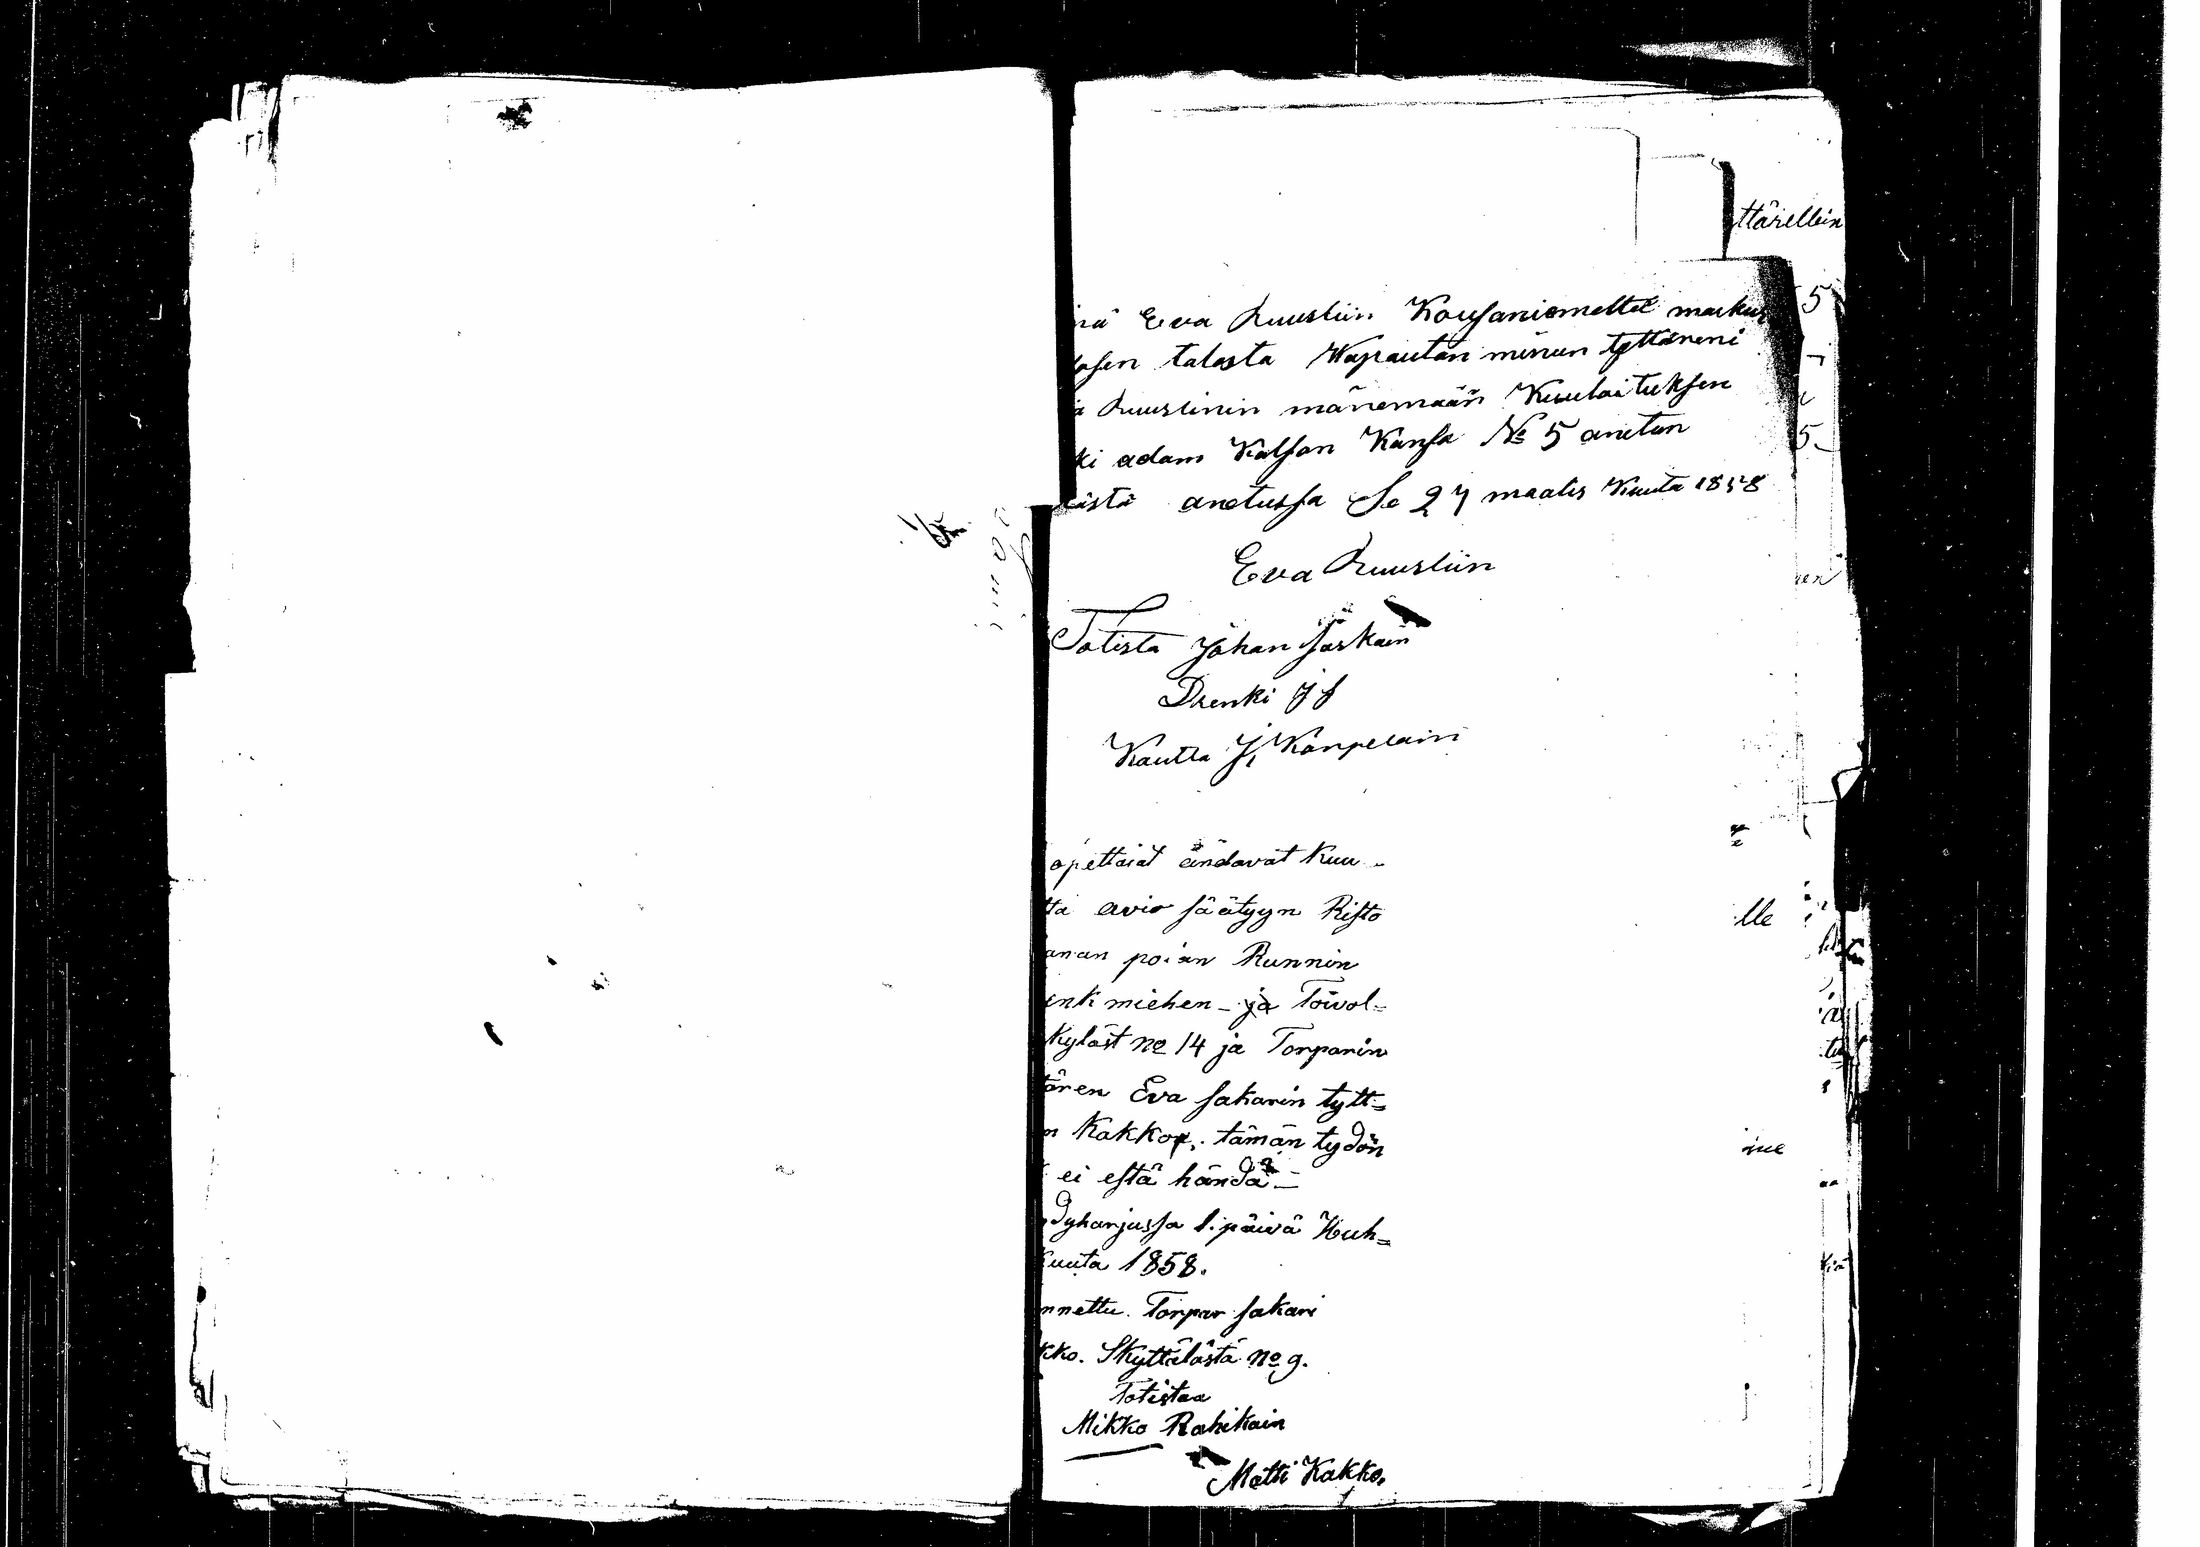 ttärellein
nä Eva Ruusliin Kousaniemeltä markus
osen talosta Wapautan minun tyttäreni
a Ruuslinin mänemään Kuulaituksen
ki adam Kalson Kansa № 5 anetun
ästä anetussa Se 27 maalis Kuuta 1858
Eva Ruusliin
Totista Johan Jäskäin
Drenki JJ
Kautta J, Kärpeläin
opettaiat andavat Kuu-
ta avio säätyyn Risto
anan poian Runnin
enk miehen - ja Toivol=
Kyläst no 14 ja Torparin
tären Eva Sakarin tytt=
n Kakko, tämän tydön
ei estä händä -
dyharjussa 1. päivä Huh=
Kuuta 1858.
nnettu. Torpar Sakari
kko. Skyttälästä no 9.
Totistaa
Mikko Rahikain
Matti Kakko,